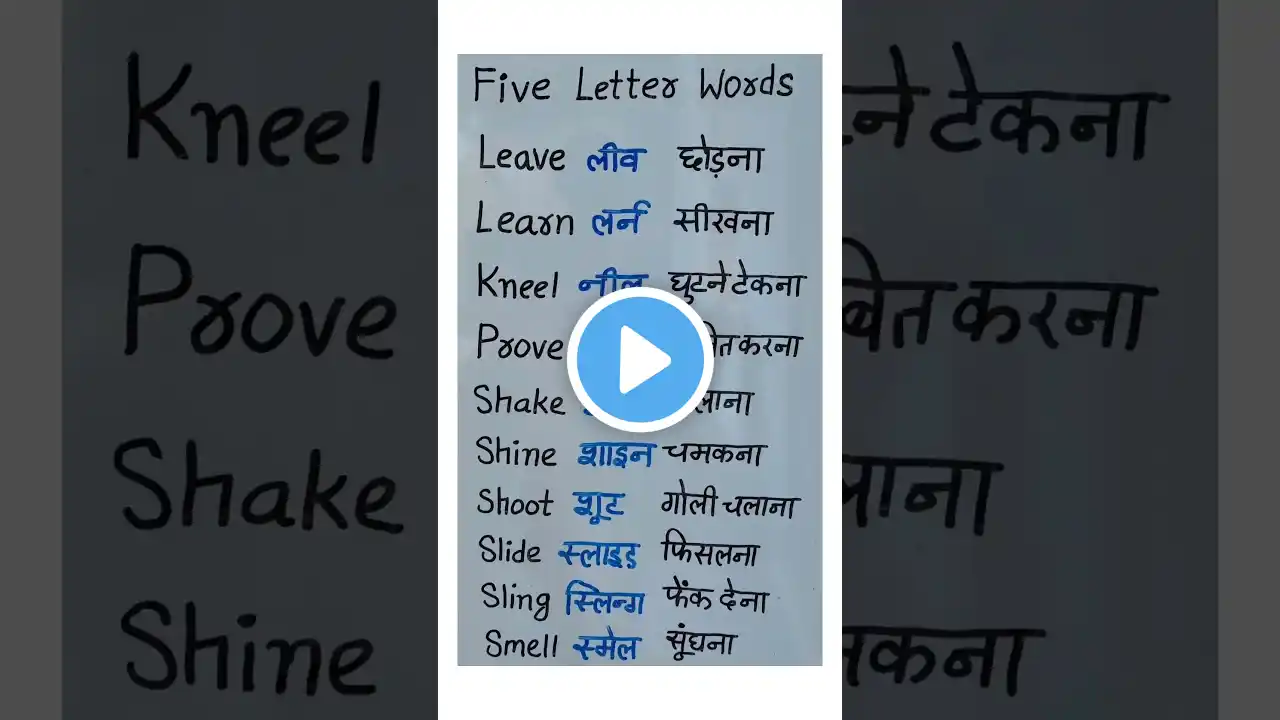 Five Letter Words
Leave लीव छोड़ना
Learn लर्न सीखना
Kneel नील घुटने टेकना
Prove करना
Shake
Shine शाइन चमकना
Shoot शूट गोली चलाना
Slide स्लाइड फिसलना
Sling स्लिन्ग फेंक देना
Smell स्मेल सूंघना
Kneel टेकना
Prove करना
Shake
Shine